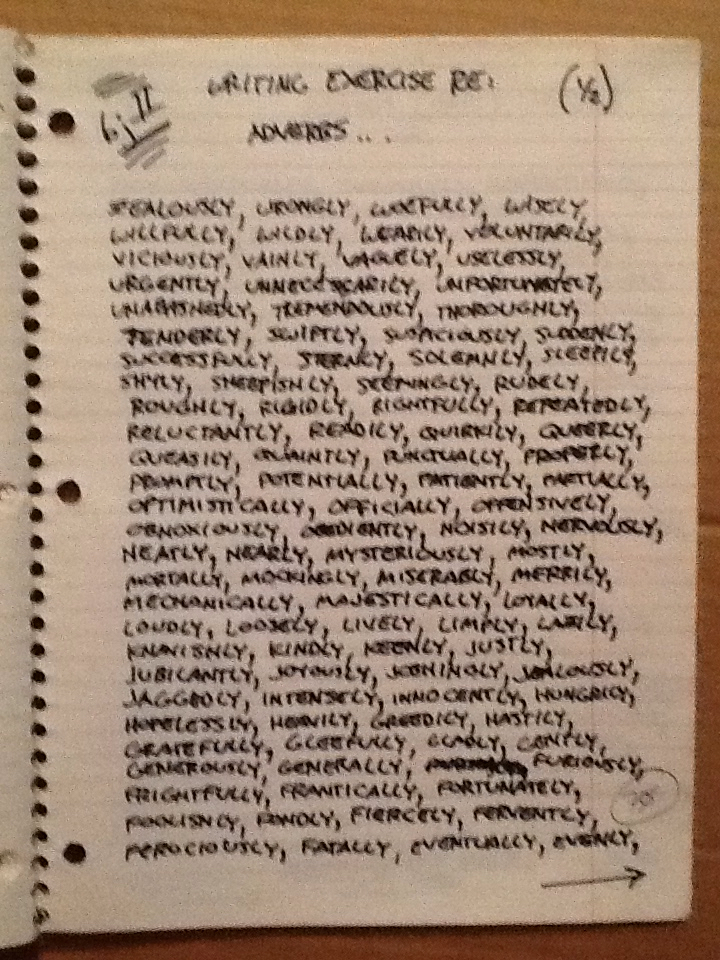 WRITING EXERCISE RE: (1/2)
ADVERBS...
ZEALOUSLY, WRONGLY, WOEFULLY, WISELY,
WILLFULLY, WILDLY, WEARILY, VOLUNTARILY,
VICIOUSLY, VAINLY, VAGUELY, USELESSLY,
URGENTLY, UNNECESSARILY, UNFORTUNATELY,
UNABASHEDLY, TREMENDOUSLY, THOROUGHLY,
TENDERLY, SWIFTLY, SUSPICIOUSLY, SUDDENLY,
SUCCESSFULLY, STERNLY, SOLEMNLY, SLEEPILY,
SHYLY, SHEEPISHLY, SEEMINGLY, RUDELY,
ROUGHLY, RIGIDLY, RIGHTFULLY, REPEATEDLY,
RELUCTANTLY, READILY, QUIRKILY, QUEERLY,
QUEASILY, QUAINTLY, PUNCTUALLY, PROPERLY,
PROMPTLY, POTENTIALLY, PATIENTLY, PARTIALLY,
OPTIMISTICALLY, OFFICIALLY, OFFENSIVELY,
OBNOXIOUSLY, OBEDIENTLY, NOISILY, NERVOUSLY,
NEATLY, NEARLY, MYSTERIOUSLY, MOSTLY,
MORTALLY, MOCKINGLY, MISERABLY, MERRILY,
MECHANICALLY, MAJESTICALLY, LOYALLY,
LOUDLY, LOOSELY, LIVELY, LIMPLY, LAZILY,
KNAVISHLY, KINDLY, KEENLY, JUSTLY,
JUBILANTLY, JOYOUSLY, JOKINGLY, JEALOUSLY,
JAGGEDLY, INTENSELY, INNOCENTLY, HUNGRILY,
HOPELESSLY, HEAVILY, GREEDILY, HASTILY,
GRATEFULLY, GLEEFULLY, GLADLY, GENTLY,
GENEROUSLY, GENERALLY, FURIOUSLY,
FRIGHTFULLY, FRANTICALLY, FORTUNATELY,
FOOLISHLY, FONDLY, FIERCELY, FERVENTLY,
FEROCIOUSLY, FATALLY, EVENTUALLY, EVENLY,